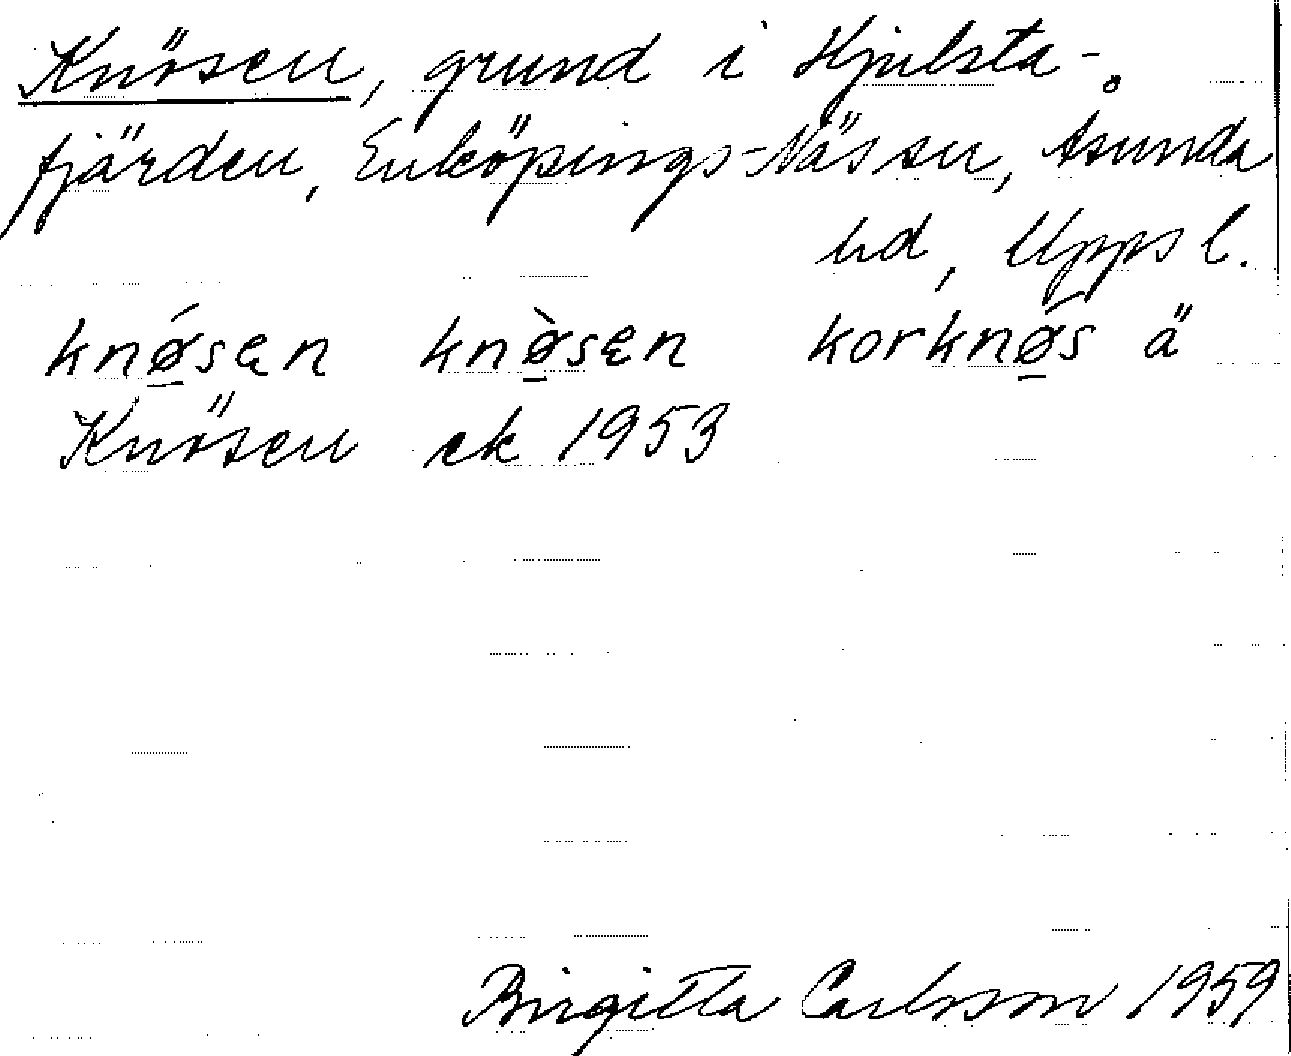 Knösen, grund i Hjulsta-
fjärden, Enköpings-Näs sn, Åsunda
hd, Uppsl.
knǿ̱sɛn knø̱̀sɛn korknǿ̱s ä
Knösen ek 1953
Birgitta Carlsson 1959